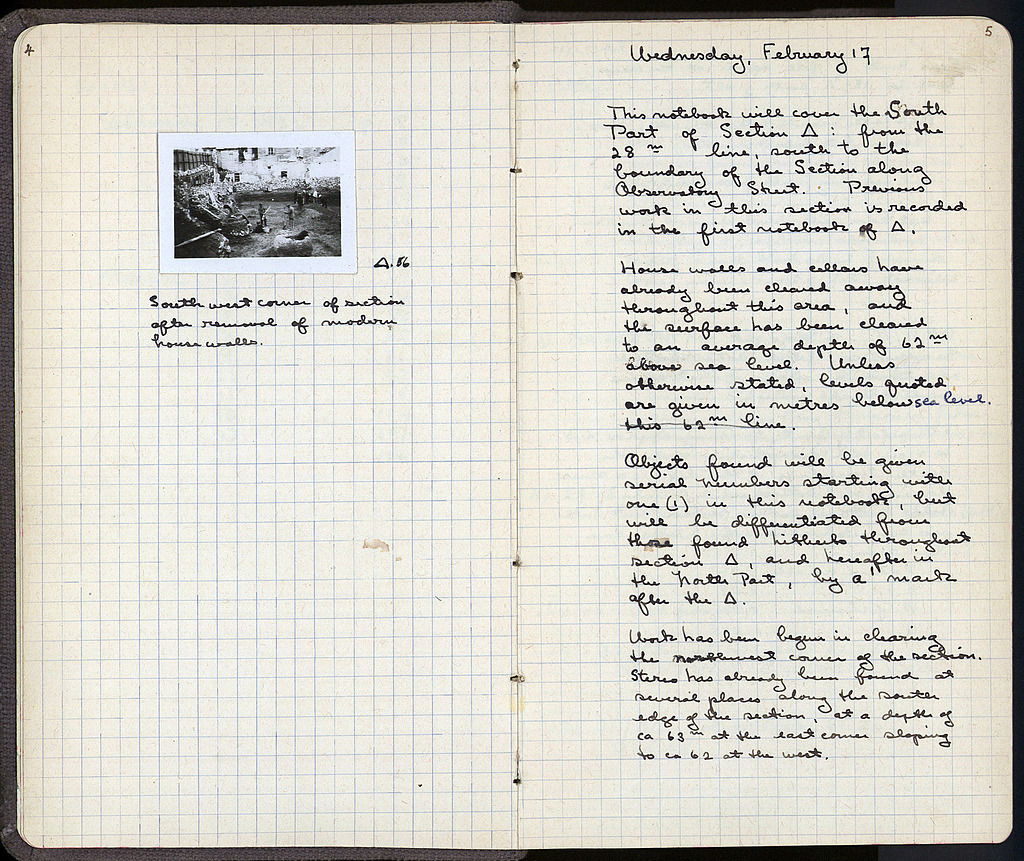 4
Δ.56
South west corner of section
after removal of modern
house walls.
5
Wednesday, February 17
This notebook will cover the South
Part of Section Δ : from the
28 m line, south to the
boundary of the Section along
Observatory Street. Previous
work in this section is recorded
in the first notebook of Δ.
House walls and cellars have
already been cleared away
throughout this area, and
the surface has been cleared
to an average depth of 62 m
above sea level. Unless
otherwise stated, levels quoted
are given in metres below sea level.
this 62 m line.
Objects found will be given
serial numbers starting with
one (1) in this notebook, but
will be differentiated from
those found hitherto throughout
section Δ, and hereafter in
the North Part, by a ' mark
after the Δ.
Work has been begun in clearing
the corner of the section.
Stereo has already been found at
several places along the south
edge of the section, at a depth of
ca 63 m at the east corner sloping
to ca 62 at the west.